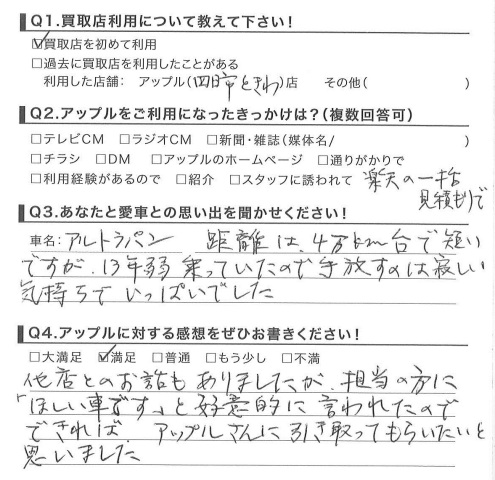 Q1.買取店利用について教えて下さい!
☑買取店を初めて利用
□過去に買取店を利用したことがある
利用した店舗: アップル(四日市ときわ)店 その他( )
Q2.アップルをご利用になったきっかけは?(複数回答可)
□テレビCM □ラジオCM □新聞・雑誌(媒体名/ )
□チラシ □DM □アップルのホームページ □通りがかりで
□利用経験があるので □紹介 □スタッフに誘われて 楽天の一括
見積もりで
Q3.あなたと愛車との思い出を聞かせください!
車名:アルトラパン 距離は、4万km台で短い
ですが、13年弱乗っていたので手放すのは寂しい
気持ちでいっぱいでした
Q4.アップルに対する感想をぜひお書きください!
□大満足 ☑満足 □普通 □もう少し □不満
他店とのお話もありましたが、担当の方に
「ほしい車です」と好意的に言われたので
できれば、アップルさんに引き取ってもらいたいと
思いました